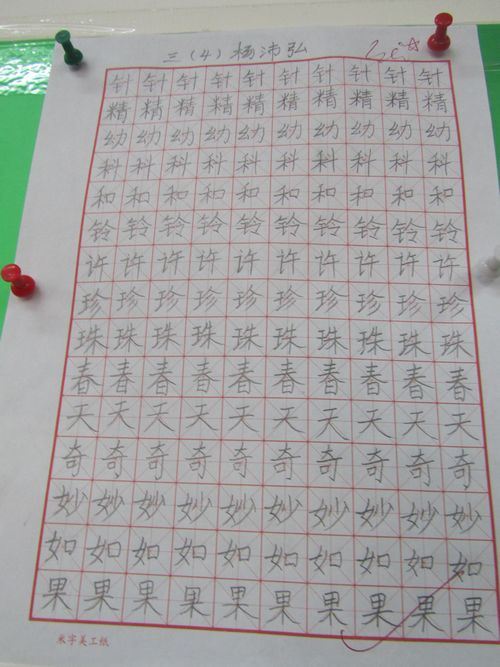 三（4）杨沛弘
针针针针针针针针针针
精精精精精精精精精精
幼幼幼幼幼幼幼幼幼幼
科科科科科科科科科科
和和和和和和和和和和
铃铃铃铃铃铃铃铃铃铃
许许许许许许许许许许
珍珍珍珍珍珍珍珍珍珍
珠珠珠珠珠珠珠珠珠珠
春春春春春春春春春春
天天天天天天天天天天
奇奇奇奇奇奇奇奇奇奇
妙妙妙妙妙妙妙妙妙妙
如如如如如如如如如如
果果果果果果果果果果
米字美工纸